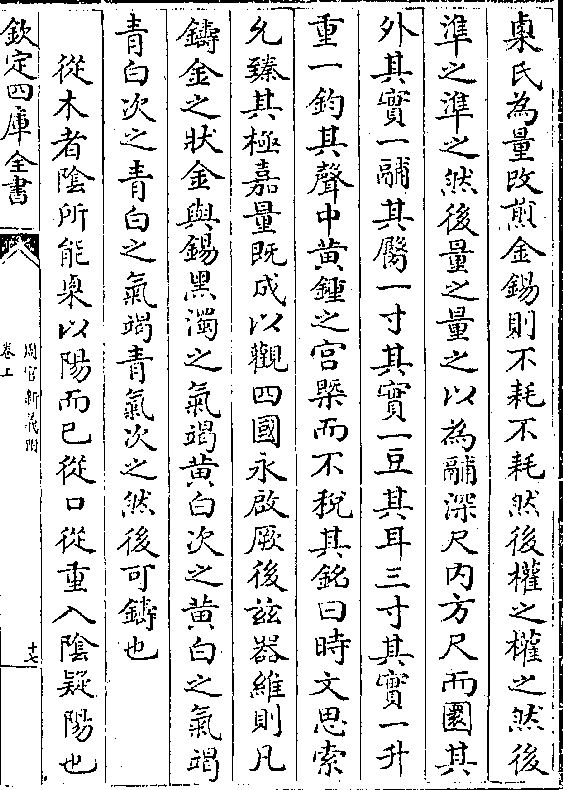 㮚氏為量改煎金錫則不耗不耗然後權之權之然後
準之準之然後量之量之以為鬴深尺内方尺而圜其
外其實一鬴其臋一寸其實一豆其耳三寸其實一升
重一鈞其聲中黄鍾之宫槩而不稅其銘曰時文思索
允臻其極嘉量既成以觀四國永啟厥後兹器維則凡
鑄金之狀金與錫黑濁之氣竭黄白次之黄白之氣竭
青白次之青白之氣竭青氣次之然後可鑄也
從木者陰所能㮚以陽而已從口從重入陰疑陽也
欽定四庫全書
周官新義附
卷上
十七